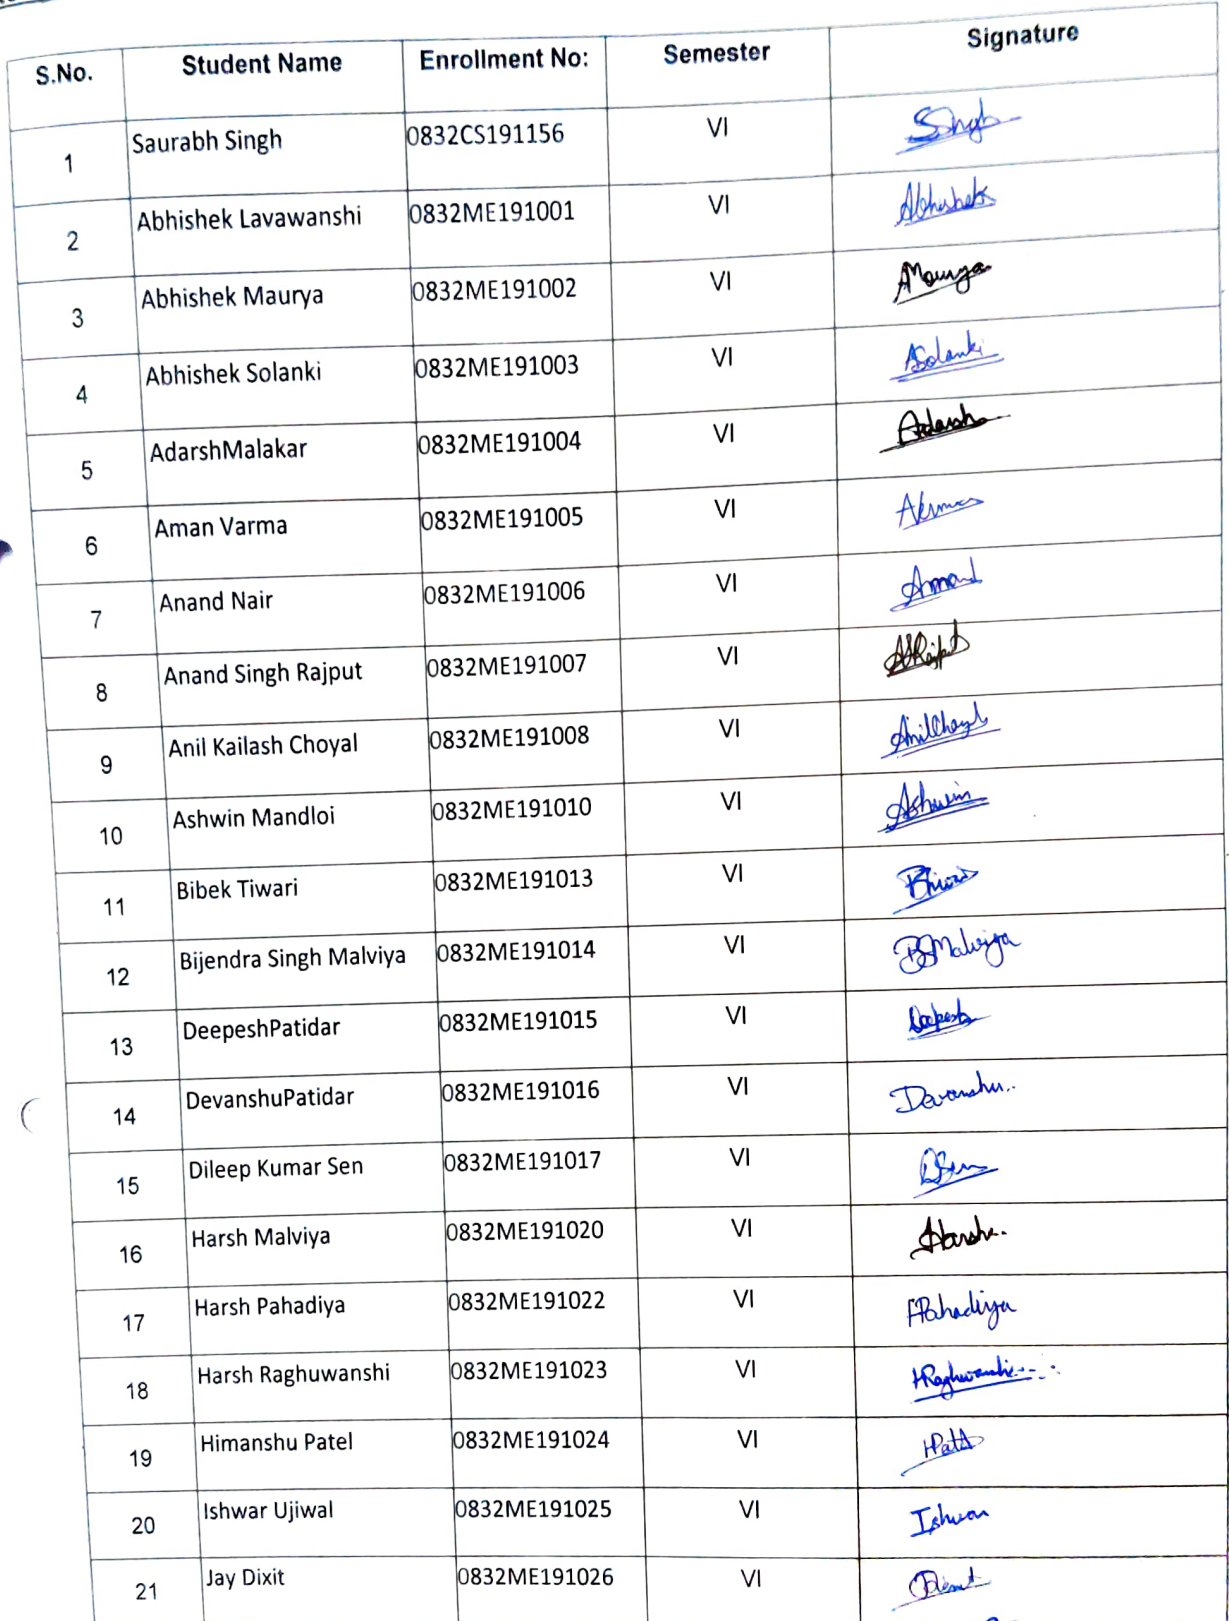 S.No. Student Name Enrollment No: Semester Signature
1 Saurabh Singh 0832CS191156 VI SSingh
2 Abhishek Lavawanshi 0832ME191001 VI Abhishek
3 Abhishek Maurya 0832ME191002 VI AMourya
4 Abhishek Solanki 0832ME191003 VI ASolanki
5 AdarshMalakar 0832ME191004 VI Adarsh
6 Aman Varma 0832ME191005 VI
7 Anand Nair 0832ME191006 VI Anand
8 Anand Singh Rajput 0832ME191007 VI ASRajput
9 Anil Kailash Choyal 0832ME191008 VI AnilChoyal
10 Ashwin Mandloi 0832ME191010 VI Ashwin
11 Bibek Tiwari 0832ME191013 VI
12 Bijendra Singh Malviya 0832ME191014 VI BSMalviya
13 DeepeshPatidar 0832ME191015 VI Deepesh
14 DevanshuPatidar 0832ME191016 VI Devanshu..
15 Dileep Kumar Sen 0832ME191017 VI DSen
16 Harsh Malviya 0832ME191020 VI Harsh.
17 Harsh Pahadiya 0832ME191022 VI HPahadiya
18 Harsh Raghuwanshi 0832ME191023 VI HRaghuwanshi
19 Himanshu Patel 0832ME191024 VI HPatel
20 Ishwar Ujiwal 0832ME191025 VI Ishwar
21 Jay Dixit 0832ME191026 VI